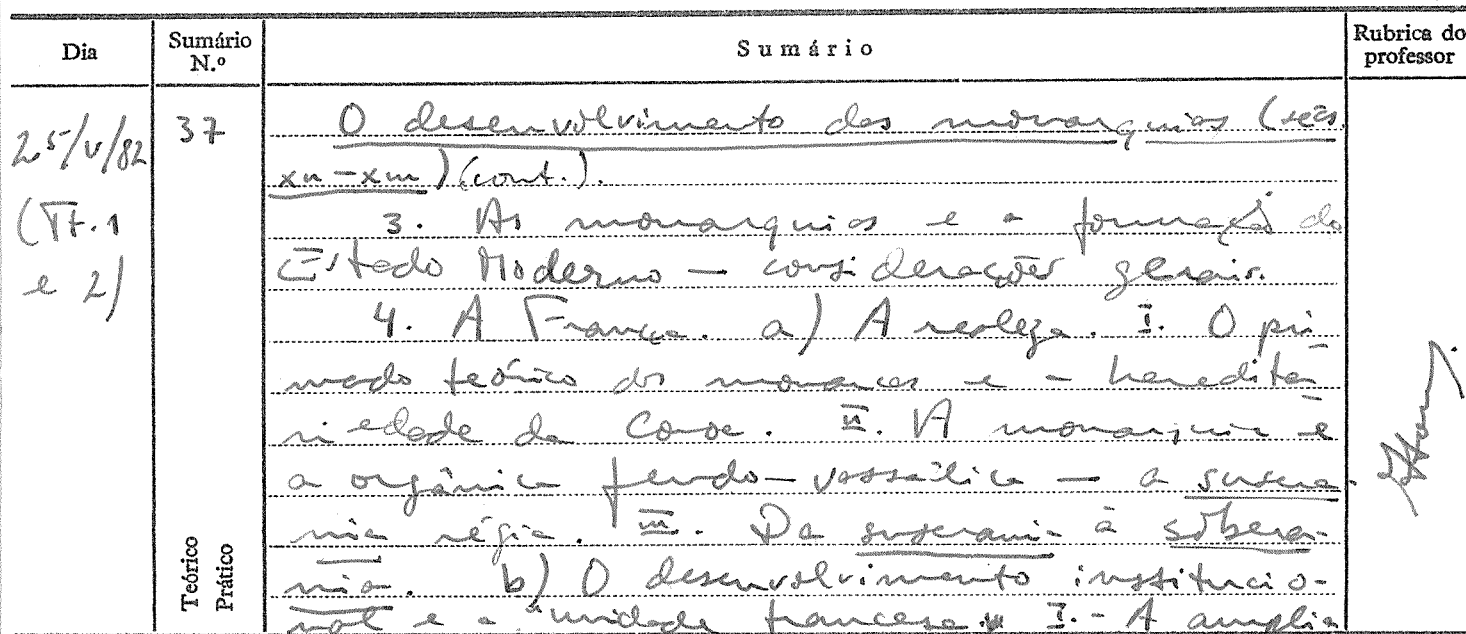 Dia
Sumário N.º
Sumário
Rubrica do professor
25/V/82
(Tt. 1
e 2)
37
Teórico
Prático
O desenvolvimento das monarquias (sécs.
XII-XIII) (cont.).
3. As monarquias e a formação do
Estado Moderno — considerações gerais.
4. A França. a) A realeza. I. O pri-
mado teórico dos monarcas e a heredita-
riedade da Coroa. II. A monarquia e
a orgânica feudo-vassálica — a susera-
nia régia. III. Da suserania à sobera-
nia. b) O desenvolvimento institucio-
nal e a "unidade francesa". I. - A amplia